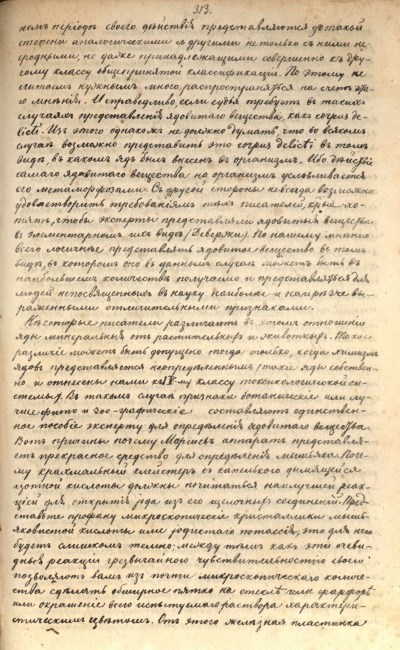 313.
номъ періодѣ своего дѣйствія представляются съ такой
стороны аналогическими съ другими не только съ ними не
сродными, но даже принадлежащими совершенно къ дру-
гому классу общепринятой классификаціи. По этому не
считаемъ нужнымъ много распространяться на счетъ это-
го мнѣнія. И справедливо, если судья требуетъ въ такихъ
случаяхъ представленія ядовитаго вещества, какъ corpus de-
licti. Изъ этого однакожъ не должно думать, что во всякомъ
случаѣ возможно представить это corpus delicti въ томъ
видѣ, въ какомъ ядъ былъ внесенъ въ организмъ. Ибо дѣйствіе
самаго ядовитаго вещества на организмъ условливается
его метаморфозами. Съ другой стороны не всегда возможно
удовлетворить требованіямъ тѣхъ писателей, которые хо-
тятъ, чтобы эксперты представляли ядовитыя вещества
въ элементарномъ ихъ видѣ (Девержи). По нашему мнѣнію
всего логичнѣе представлять ядовитое вещество въ томъ
видѣ, въ которомъ оно въ данномъ случаѣ можетъ быть въ
наибольшемъ количествѣ получаемо и представляться для
людей непосвященныхъ въ науку наиболѣе и наирѣзче вы-
раженными отличительными признаками.
Нѣкоторые писатели различаютъ въ этомъ отношеніи
яды минеральные отъ растительныхъ и животныхъ. Такое
различіе можетъ быть допущено тогда только, когда химизмъ
ядовъ представляется неопредѣленнымъ (такіе яды собствен-
но и отнесены нами къ IV-му классу токсикологической си-
стемы). Въ такомъ случаѣ признаки ботаническіе или лу-
чше фито- и зоо-графическіе составляютъ единствен-
ное пособіе эксперту для опредѣленія ядовитаго вещества.
Вотъ причины почему Маршевъ аппаратъ представля-
етъ прекрасное средство для опредѣленія мышьяка. Поче-
му крахмальный клейстеръ съ капелькою дымящейся
азотной кислоты должны почитаться наилучшей реак-
ціей для открытія іода изъ его щелочныхъ соединеній. Пред-
ставьте профану микроскопическіе кристаллики мышь-
яковистой кислоты или іодистаго потассія, это для него
будетъ слишкомъ темно: между тѣмъ какъ эти очеви-
дныя реакціи чрезвычайною чувствительностію своею
позволяютъ вамъ изъ почти микроскопическаго количе-
ства сдѣлать обширное пятно на стеклѣ или фарфорѣ
или окрашеніе всего испытуемаго раствора характери-
стическимъ цвѣтомъ. Отъ этого желѣзная пластинка